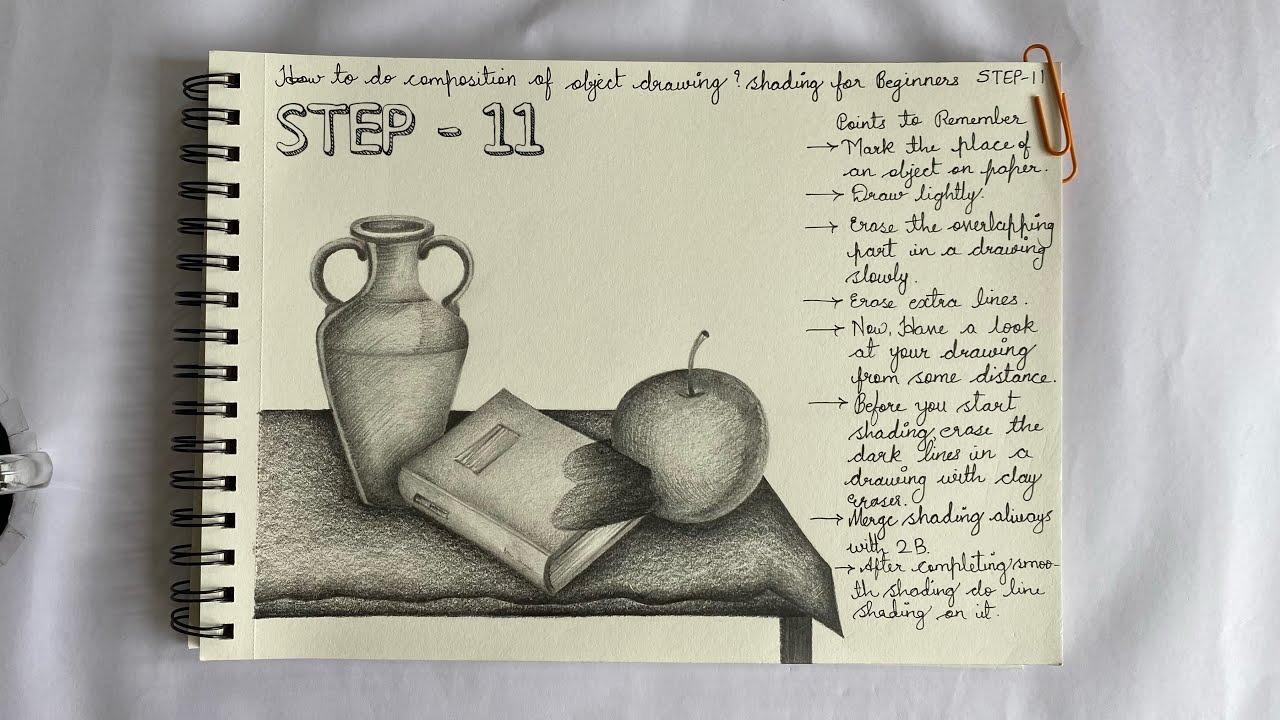 How to do composition of object drawing? shading for Beginners STEP-11
STEP - 11
Points to Remember
→ Mark the place of
an object on paper.
→ Draw lightly.
→ Erase the overlapping
part in a drawing
slowly.
→ Erase extra lines.
→ Now, Have a look
at your drawing
from some distance.
→ Before you start
shading, erase the
dark lines in a
drawing with clay
eraser.
→ Merge shading always
with 2B.
→ After completing smoo-
th shading do line
shading on it.